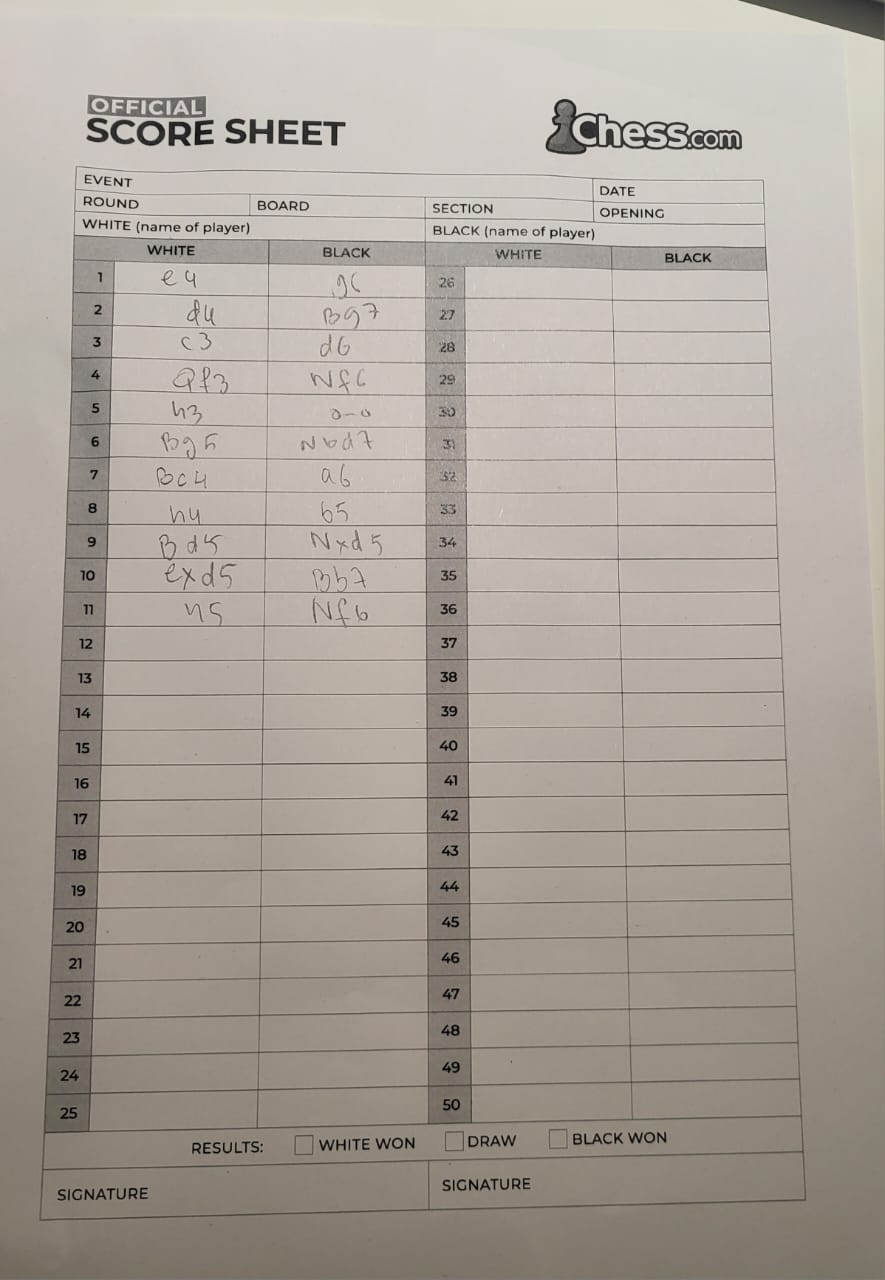 OFFICIAL
SCORE SHEET
Chess.com
EVENT
DATE
ROUND BOARD SECTION OPENING
WHITE (name of player) BLACK (name of player)
WHITE BLACK WHITE BLACK
1 e4 g6 26
2 d4 Bg7 27
3 c3 d6 28
4 Qf3 Nf6 29
5 h3 0-0 30
6 Bg5 Nbd7 31
7 Bc4 a6 32
8 h4 b5 33
9 Bd5 Nxd5 34
10 exd5 Bb7 35
11 h5 Nf6 36
12 37
13 38
14 39
15 40
16 41
17 42
18 43
19 44
20 45
21 46
22 47
23 48
24 49
25 50
RESULTS: WHITE WON DRAW BLACK WON
SIGNATURE SIGNATURE